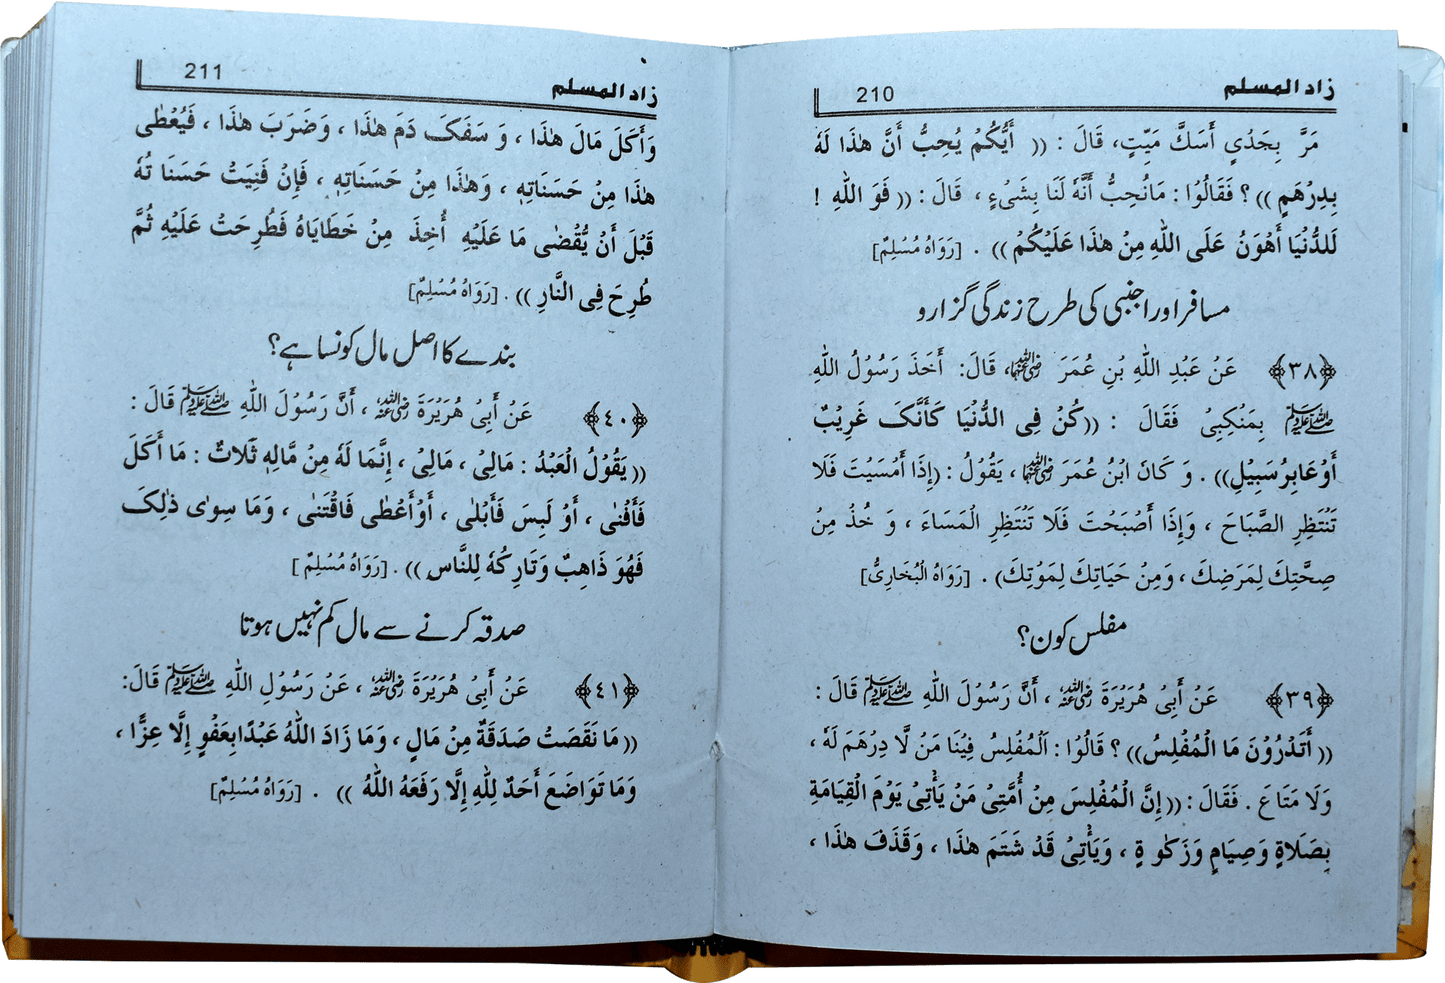 زاد المسلم
210
مَرَّ بِجَدْيٍ أَسَكَّ مَيِّتٍ، قَالَ : (( أَيُّكُمْ يُحِبُّ أَنَّ هٰذَا لَهٗ
بِدِرْهَمٍ )) ؟ فَقَالُوْا : مَانُحِبُّ أَنَّهٗ لَنَا بِشَىْءٍ ، قَالَ : (( فَوَ اللّٰهِ !
لَلدُّنْيَا أَهْوَنُ عَلَى اللّٰهِ مِنْ هٰذَا عَلَيْكُمْ )) . [رَوَاهُ مُسْلِمٌ]
مسافر اور اجنبی کی طرح زندگی گزارو
﴿٣٨﴾ عَنْ عَبْدِ اللّٰهِ بْنِ عُمَرَ رضی اللہ عنہما، قَالَ: أَخَذَ رَسُوْلُ اللّٰهِ
ﷺ بِمَنْكِبِىْ فَقَالَ : ((كُنْ فِى الدُّنْيَا كَأَنَّكَ غَرِيْبٌ
أَوْعَابِرُ سَبِيْلٍ)) . وَ كَانَ ابْنُ عُمَرَ رضی اللہ عنہما ، يَقُوْلُ : (إِذَا أَمْسَيْتَ فَلَا
تَنْتَظِرِ الصَّبَاحَ ، وَإِذَا أَصْبَحْتَ فَلَا تَنْتَظِرِ الْمَسَاءَ ، وَ خُذْ مِنْ
صِحَّتِكَ لِمَرَضِكَ ، وَمِنْ حَيَاتِكَ لِمَوْتِكَ) . [رَوَاهُ الْبُخَارِىُّ]
مفلس کون؟
﴿٣٩﴾ عَنْ أَبِىْ هُرَيْرَةَ رضی اللہ عنہ ، أَنَّ رَسُوْلَ اللّٰهِ ﷺ قَالَ :
(( أَتَدْرُوْنَ مَا الْمُفْلِسُ)) ؟ قَالُوْا : اَلْمُفْلِسُ فِيْنَا مَنْ لَّا دِرْهَمَ لَهٗ ،
وَلَا مَتَاعَ . فَقَالَ : ((إِنَّ الْمُفْلِسَ مِنْ أُمَّتِىْ مَنْ يَأْتِىْ يَوْمَ الْقِيَامَةِ
بِصَلَاةٍ وَصِيَامٍ وَزَكَوةٍ ، وَيَأْتِىْ قَدْ شَتَمَ هٰذَا ، وَقَذَفَ هٰذَا ،
زاد المسلم
211
وَأَكَلَ مَالَ هٰذَا ، وَ سَفَكَ دَمَ هٰذَا ، وَضَرَبَ هٰذَا ، فَيُعْطٰى
هٰذَا مِنْ حَسَنَاتِهٖ ، وَهٰذَا مِنْ حَسَنَاتِهٖ ، فَإِنْ فَنِيَتْ حَسَنَا تُهٗ
قَبْلَ أَنْ يُّقْضٰى مَا عَلَيْهِ أُخِذَ مِنْ خَطَايَاهُ فَطُرِحَتْ عَلَيْهِ ثُمَّ
طُرِحَ فِى النَّارِ )) . [رَوَاهُ مُسْلِمٌ]
بندے کا اصل مال کونسا ہے؟
﴿٤٠﴾ عَنْ أَبِىْ هُرَيْرَةَ رضی اللہ عنہ ، أَنَّ رَسُوْلَ اللّٰهِ ﷺ قَالَ :
(( يَقُوْلُ الْعَبْدُ : مَالِىْ ، مَالِىْ ، إِنَّمَا لَهٗ مِنْ مَّالِهٖ ثَلَاثٌ : مَا أَكَلَ
فَأَفْنٰى ، أَوْ لَبِسَ فَأَبْلٰى ، أَوْأَعْطٰى فَاقْتَنٰى ، وَمَا سِوٰى ذٰلِكَ
فَهُوَ ذَاهِبٌ وَتَارِكُهٗ لِلنَّاسِ )) . [رَوَاهُ مُسْلِمٌ]
صدقہ کرنے سے مال کم نہیں ہوتا
﴿٤١﴾ عَنْ أَبِىْ هُرَيْرَةَ رضی اللہ عنہ ، عَنْ رَسُوْلِ اللّٰهِ ﷺ قَالَ:
(( مَا نَقَصَتْ صَدَقَةٌ مِنْ مَالٍ ، وَمَا زَادَ اللّٰهُ عَبْدًابِعَفْوٍ إِلَّا عِزًّا ،
وَمَا تَوَاضَعَ أَحَدٌ لِلّٰهِ إِلَّا رَفَعَهُ اللّٰهُ )) . [رَوَاهُ مُسْلِمٌ]